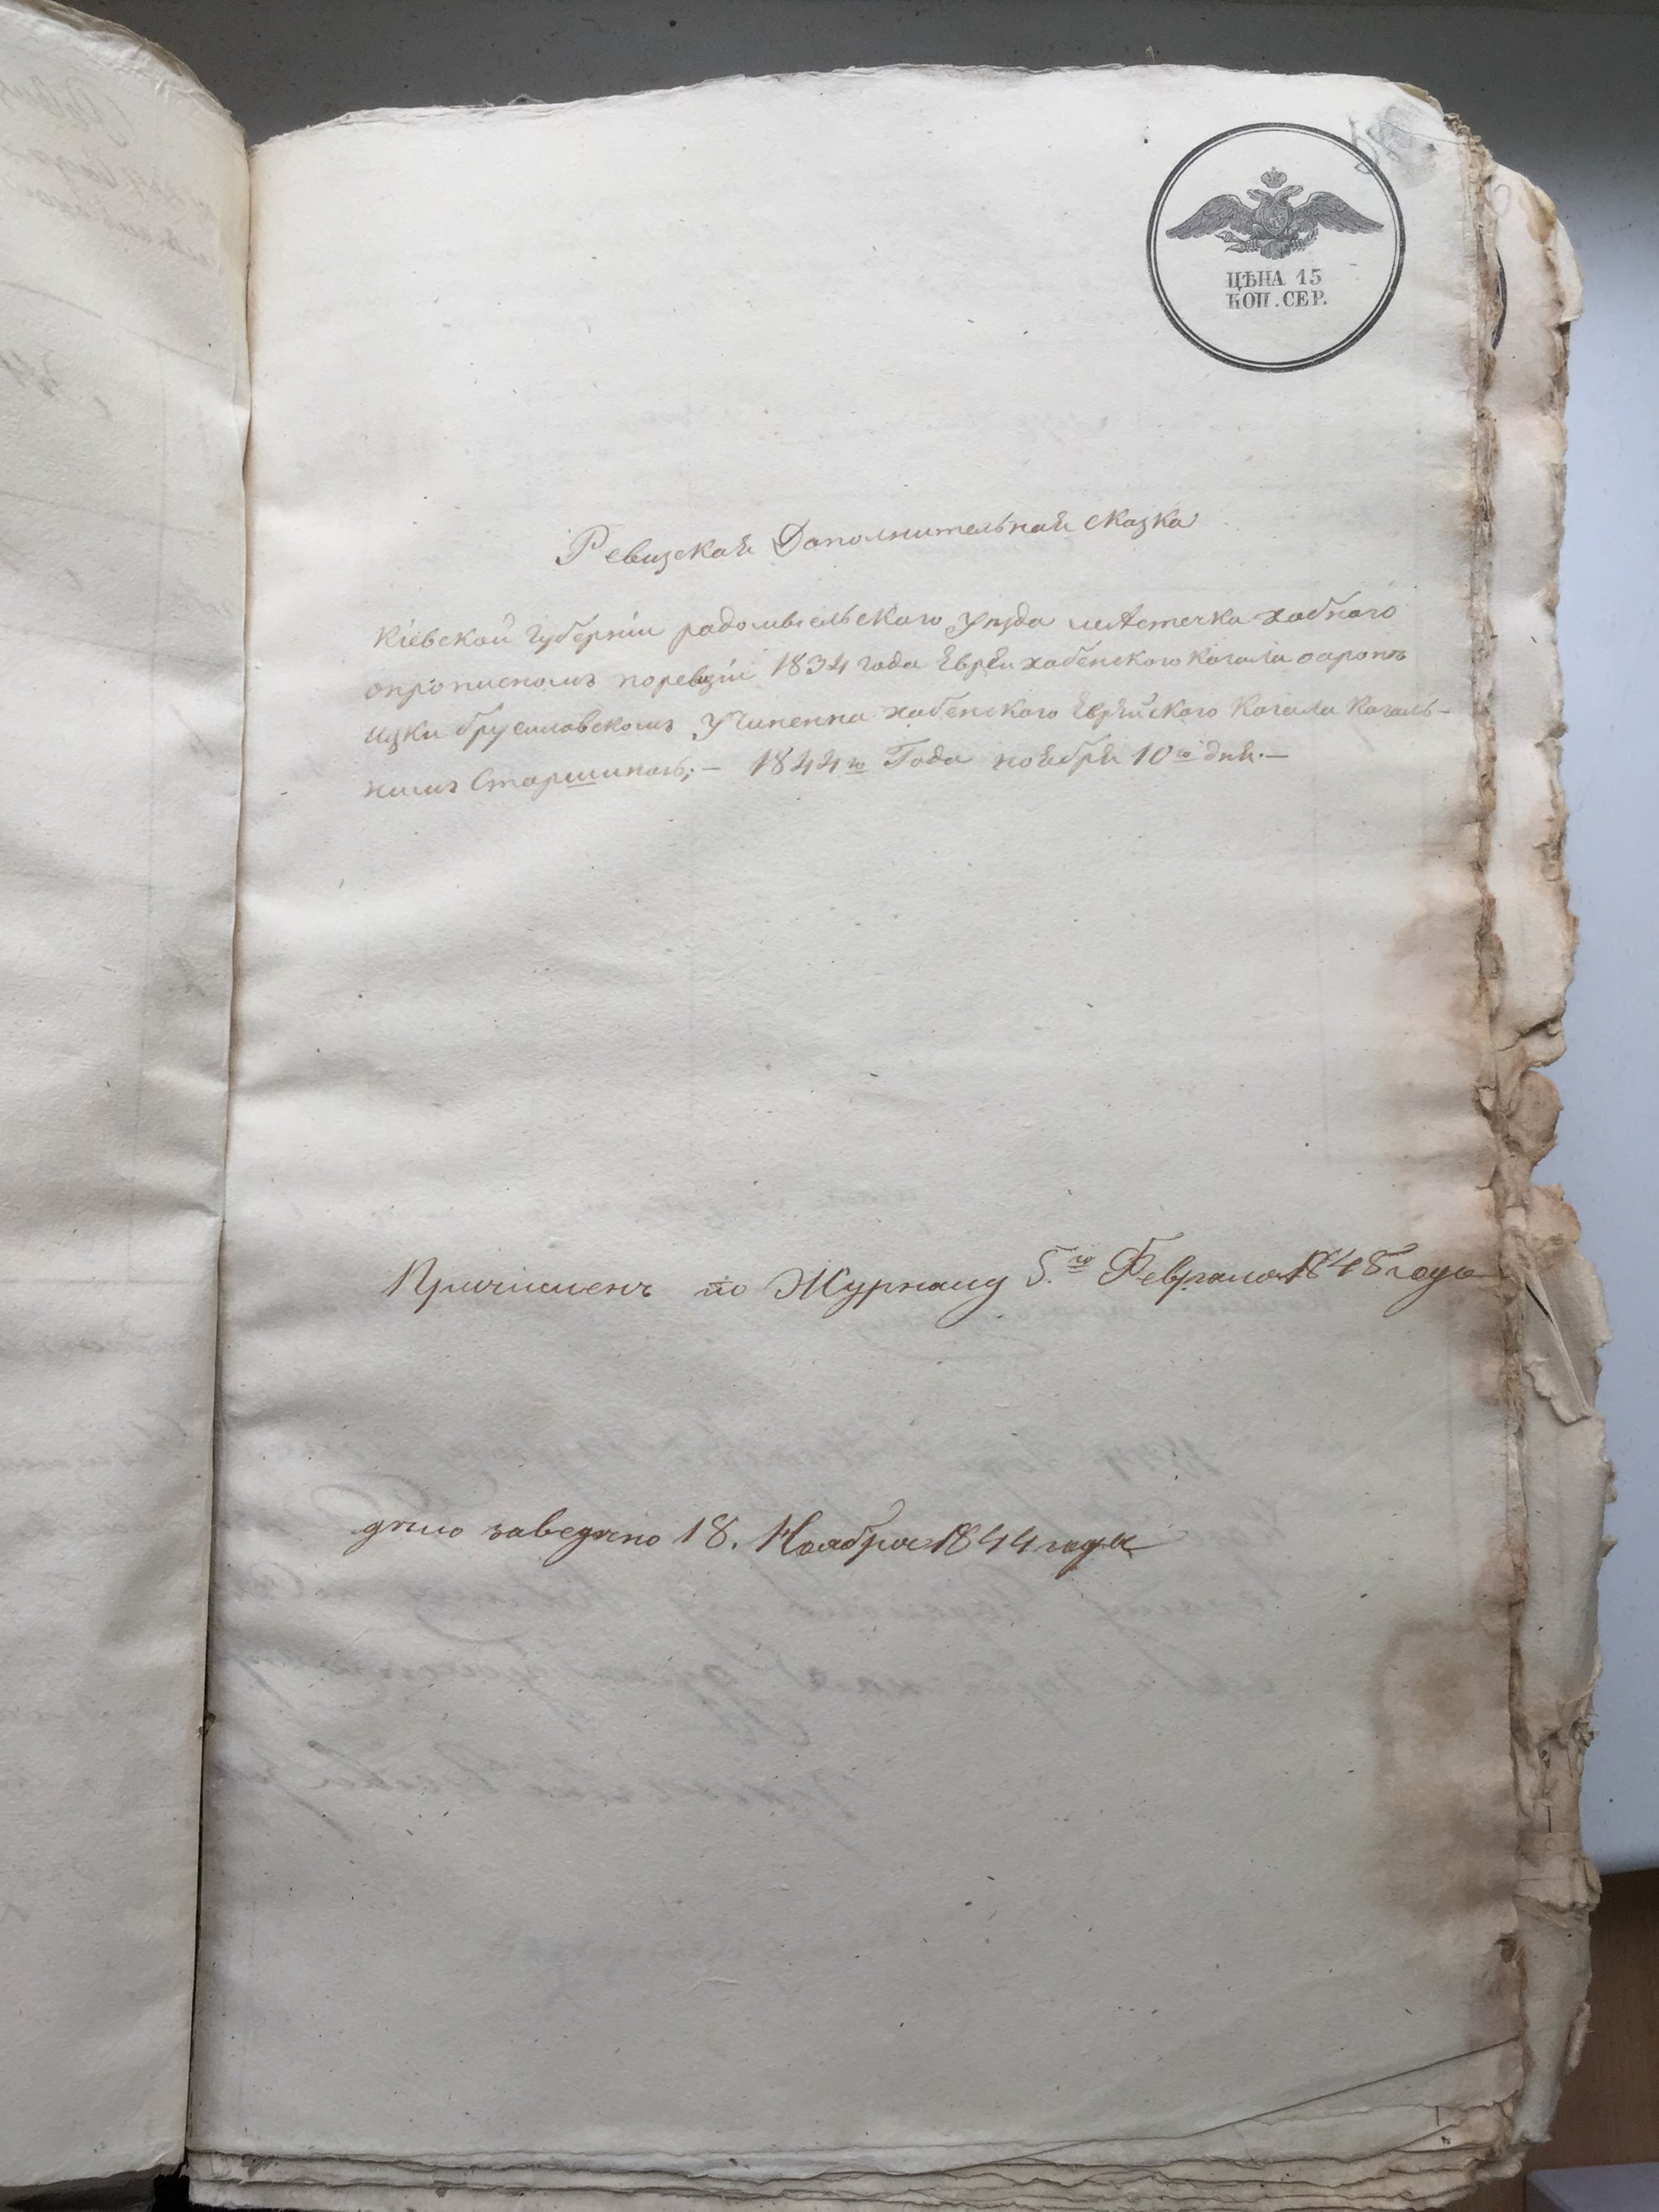 ЦѢНА 15
КОП. СЕР.
Ревизская Дополнительная сказка
Кіевской Губерніи радомысельского Уѣзда мѣстечка хабного
опрописномъ поревизіи 1834 года Евреи хабенского Кагала
брусиловскомъ Учиненна хабенского Еврейского Кагала Кагаль-
нимъ Старшиною; — 1844го Года ноября 10го дня. —
Причисленъ по Журналу 5.го Февраля 1848 года
дѣло заведено 18. Ноября 1844 года